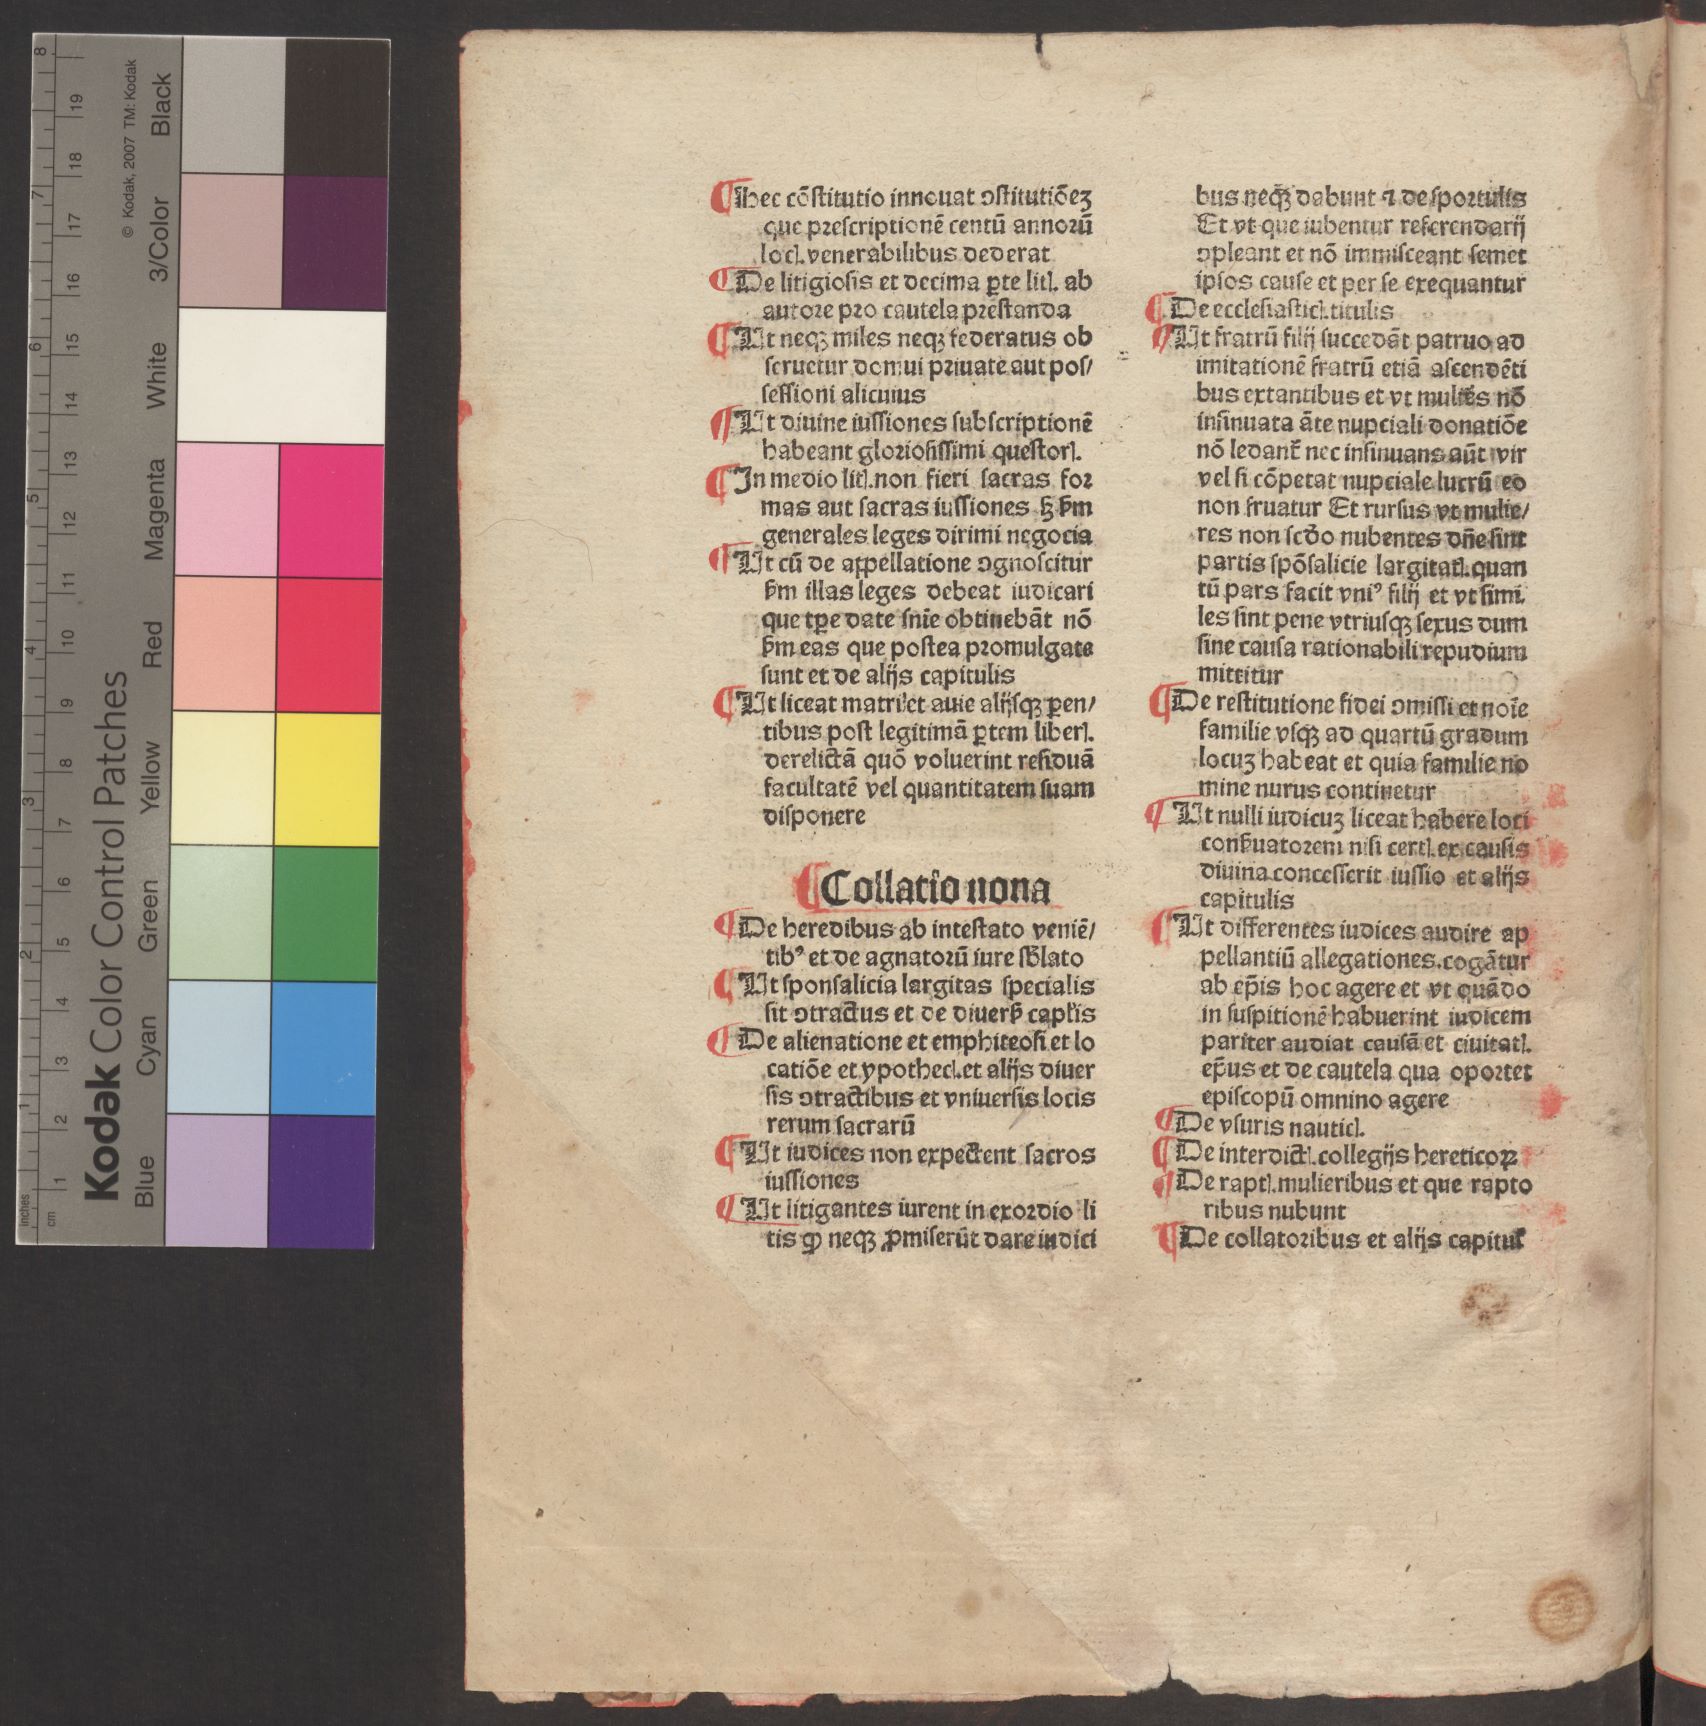 ¶ Hec cōstitutio innouat ↄstitutiōeꝫ
que prescriptionē centū annorū
locꝭ. venerabilibus dederat
¶ De litigiosis et decima ꝑte litꝭ. ab
autore pro cautela prestanda
¶ Ut neqꝫ miles neqꝫ federatus ob
seruetur domui priuate aut pos/
sessioni alicuius
¶ Ut diuine iussiones subscriptionē
habeant gloriosissimi questorꝭ.
¶ In medio litꝭ. non fieri sacras for
mas aut sacras iussiones hꝫ ẜm
generales leges dirimi negocia
¶ Ut cū de appellatione ↄgnoscitur
ẜm illas leges debeat iudicari
que tꝑe date snīe obtinebāt nō
ẜm eas que postea promulgate
sunt et de alijs capitulis
¶ Ut liceat matri et auie alijsqꝫ ꝑen/
tibus post legitimā ꝑtem liberꝭ.
derelictā quō voluerint residuā
facultatē vel quantitatem suam
disponere
¶ Collatio nona
¶ De heredibus ab intestato veniē/
tibꝰ et de agnatorū iure sƀlato
¶ Ut sponsalicia largitas specialis
sit ↄtractus et de diuerẜ capĺis
¶ De alienatione et emphiteosi et lo
catiōe et ypothecꝭ. et alijs diuer
sis ↄtractibus et vniuersis locis
rerum sacrarū
¶ Ut iudices non expectent sacros
iussiones
¶ Ut litigantes iurent in exordio li
tis ꝙ neqꝫ ꝓmiserūt dare iudici
bus neqꝫ dabunt ⁊ de sportulis
Et vt que iubentur referendarij
ↄpleant et nō immisceant semet
ipsos cause et per se exequantur
¶ De ecclesiasticꝭ. titulis
¶ Ut fratrū filij succedāt patruo ad
imitationē fratrū etiā ascendēti
bus extantibus et vt mulíeēs nō
insinuata āte nupciali donatiōe
nō ledant̄ nec insinuans aūt vir
vel si cōpetat nupciale lucrū eo
non fruatur Et rursus vt mulie/
res non scđo nubentes dn̄e sint
partis spōsalicie largitatꝭ. quan
tū pars facit vniꝰ filij et vt simi
les sint pene vtriusqꝫ sexus dum
sine causa rationabili repudium
mittitur
¶ De restitutione fidei ↄmissi et noīe
familie vsqꝫ ad quartū gradum
locuꝫ habeat et quia familie no
mine nurus continetur
¶ Ut nulli iudicuꝫ liceat habere loci
conẜuatorem nisi certꝭ. ex causis
diuina concesserit iussio et alijs
capitulis
¶ Ut differentes iudices audire ap
pellantiū allegationes. cogātur
ab ep̄is hoc agere et vt quādo
in suspitionē habuerint iudicem
pariter audiat causā et ciuitatꝭ.
ep̄us et de cautela qua oportet
episcopū omnino agere
¶ De vsuris nauticꝭ.
¶ De interdictꝭ. collegijs hereticoꝝ
¶ De raptꝭ. mulieribus et que rapto
ribus nubunt
¶ De collatoribus et alijs capituĺ
Kodak Color Control Patches
© Kodak, 2007 TM: Kodak
Blue Cyan Green Yellow Red Magenta White 3/Color Black
inches 1 2 3 4 5 6 7 8
cm 1 2 3 4 5 6 7 8 9 10 11 12 13 14 15 16 17 18 19